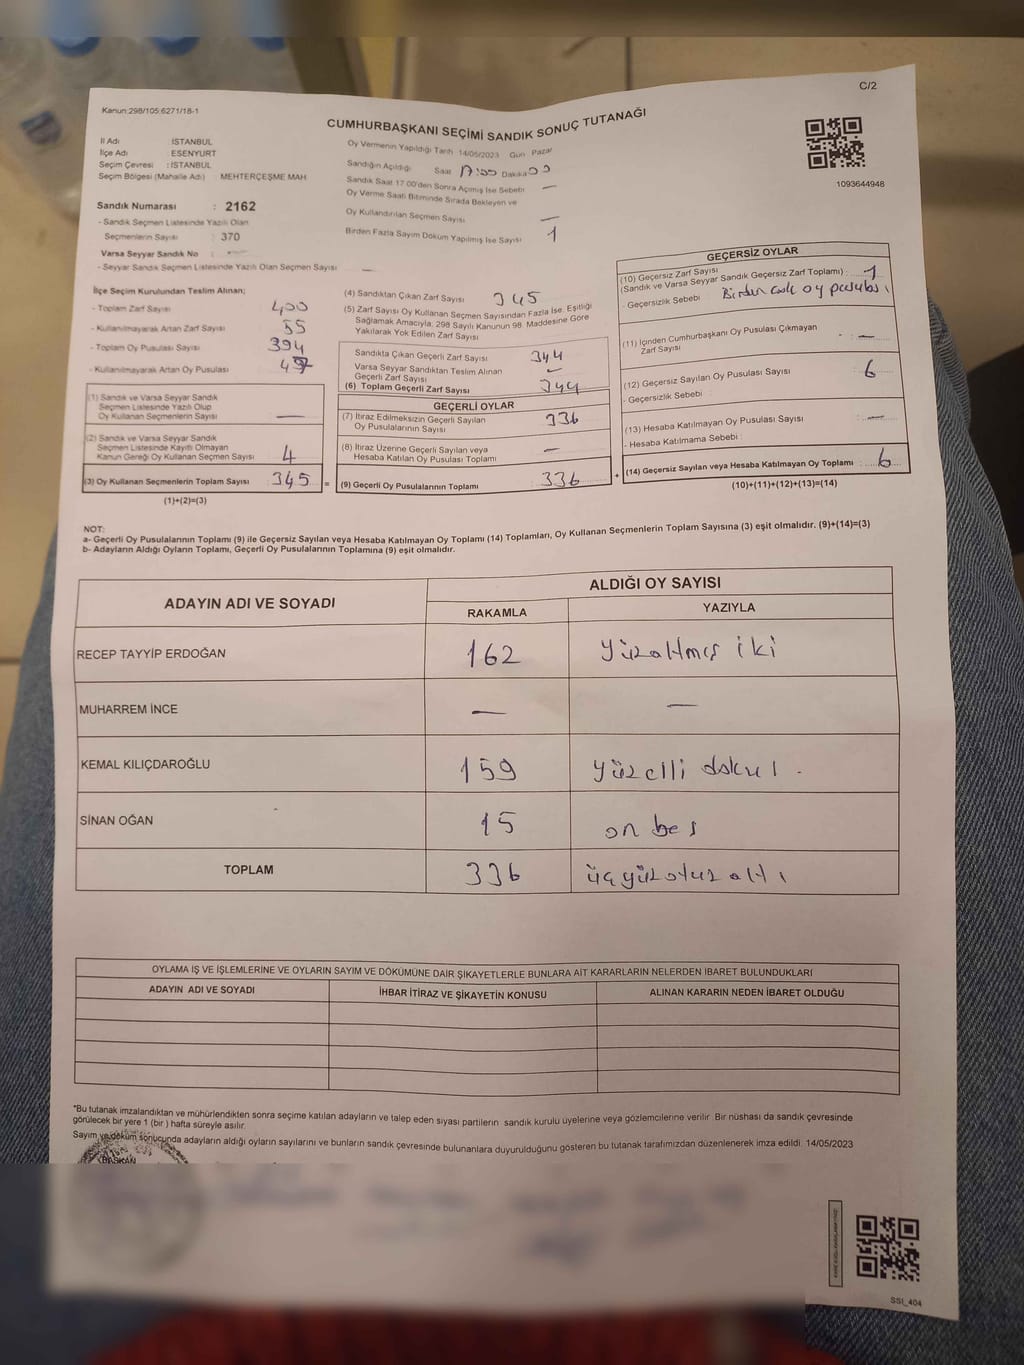 C/2
Kanun:298/105;6271/18-1
CUMHURBAŞKANI SEÇİMİ SANDIK SONUÇ TUTANAĞI
1093644948
İl Adı : İSTANBUL
İlçe Adı : ESENYURT
Seçim Çevresi : İSTANBUL
Seçim Bölgesi (Mahalle Adı) : MEHTERÇEŞME MAH
Sandık Numarası : 2162
- Sandık Seçmen Listesinde Yazılı Olan
Seçmenlerin Sayısı : 370
Varsa Seyyar Sandık No : —
- Seyyar Sandık Seçmen Listesinde Yazılı Olan Seçmen Sayısı —
Oy Vermenin Yapıldığı Tarih 14/05/2023 Gün Pazar
Sandığın Açıldığı Saat 17:00 Dakika
Sandık Saat 17.00'den Sonra Açılmış İse Sebebi —
Oy Verme Saati Bitiminde Sırada Bekleyen ve
Oy Kullandırılan Seçmen Sayısı —
Birden Fazla Sayım Döküm Yapılmış İse Sayısı 1
İlçe Seçim Kurulundan Teslim Alınan;
- Toplam Zarf Sayısı 400
- Kullanılmayarak Artan Zarf Sayısı 55
- Toplam Oy Pusulası Sayısı 394
- Kullanılmayarak Artan Oy Pusulası
(1) Sandık ve Varsa Seyyar Sandık
Seçmen Listesinde Yazılı Olup
Oy Kullanan Seçmenlerin Sayısı —
(2) Sandık ve Varsa Seyyar Sandık
Seçmen Listesinde Kayıtlı Olmayan
Kanun Gereği Oy Kullanan Seçmen Sayısı 4
(3) Oy Kullanan Seçmenlerin Toplam Sayısı 345 =
(1)+(2)=(3)
(4) Sandıktan Çıkan Zarf Sayısı 345
(5) Zarf Sayısı Oy Kullanan Seçmen Sayısından Fazla İse, Eşitliği
Sağlamak Amacıyla; 298 Sayılı Kanunun 98. Maddesine Göre
Yakılarak Yok Edilen Zarf Sayısı
Sandıkta Çıkan Geçerli Zarf Sayısı 344
Varsa Seyyar Sandıktan Teslim Alınan
Geçerli Zarf Sayısı —
(6) Toplam Geçerli Zarf Sayısı 344
GEÇERLİ OYLAR
(7) İtiraz Edilmeksizin Geçerli Sayılan
Oy Pusulalarının Sayısı 336
(8) İtiraz Üzerine Geçerli Sayılan veya
Hesaba Katılan Oy Pusulası Toplamı —
(9) Geçerli Oy Pusulalarının Toplamı 336 +
GEÇERSİZ OYLAR
(10) Geçersiz Zarf Sayısı
(Sandık ve Varsa Seyyar Sandık Geçersiz Zarf Toplamı) : 1
- Geçersizlik Sebebi : Birden oy pusulası
(11) İçinden Cumhurbaşkanı Oy Pusulası Çıkmayan
Zarf Sayısı : —
(12) Geçersiz Sayılan Oy Pusulası Sayısı : 6
- Geçersizlik Sebebi :
(13) Hesaba Katılmayan Oy Pusulası Sayısı : —
- Hesaba Katılmama Sebebi :
(14) Geçersiz Sayılan veya Hesaba Katılmayan Oy Toplamı : 6
(10)+(11)+(12)+(13)=(14)
NOT:
a- Geçerli Oy Pusulalarının Toplamı (9) ile Geçersiz Sayılan veya Hesaba Katılmayan Oy Toplamı (14) Toplamları, Oy Kullanan Seçmenlerin Toplam Sayısına (3) eşit olmalıdır. (9)+(14)=(3)
b- Adayların Aldığı Oyların Toplamı, Geçerli Oy Pusulalarının Toplamına (9) eşit olmalıdır.
ADAYIN ADI VE SOYADI ALDIĞI OY SAYISI
RAKAMLA YAZIYLA
RECEP TAYYİP ERDOĞAN 162 Yüzaltmış iki
MUHARREM İNCE — —
KEMAL KILIÇDAROĞLU 159 Yüzelli dokuz.
SİNAN OĞAN 15 on beş
TOPLAM 336 üçyüzotuz altı
OYLAMA İŞ VE İŞLEMLERİNE VE OYLARIN SAYIM VE DÖKÜMÜNE DAİR ŞİKAYETLERLE BUNLARA AİT KARARLARIN NELERDEN İBARET BULUNDUKLARI
ADAYIN ADI VE SOYADI İHBAR İTİRAZ VE ŞİKAYETİN KONUSU ALINAN KARARIN NEDEN İBARET OLDUĞU
*Bu tutanak imzalandıktan ve mühürlendikten sonra seçime katılan adayların ve talep eden siyasi partilerin sandık kurulu üyelerine veya gözlemcilerine verilir. Bir nüshası da sandık çevresinde
görülecek bir yere 1 (bir) hafta süreyle asılır.
Sayım ve döküm sonucunda adayların aldığı oyların sayılarını ve bunların sandık çevresinde bulunanlara duyurulduğunu gösteren bu tutanak tarafımızdan düzenlenerek imza edildi. 14/05/2023
BAŞKAN
SSI_404